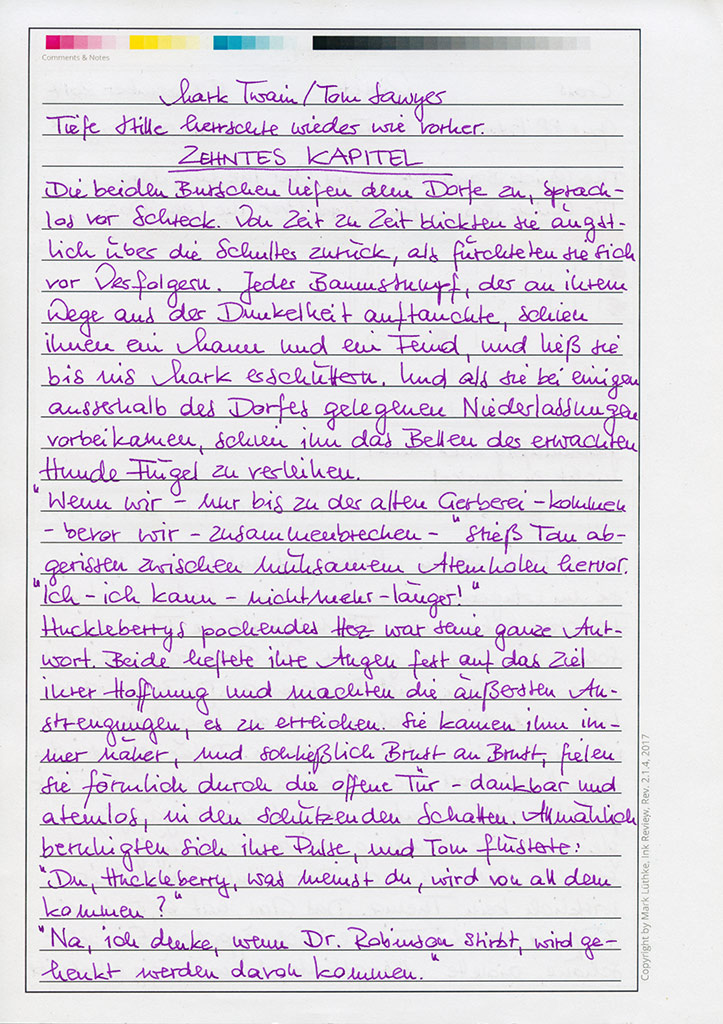 Comments & Notes
Mark Twain/Tom Sawyer
Tiefe Stille herrschte wieder wie vorher.
ZEHNTES KAPITEL
Die beiden Burschen liefen dem Dorfe zu, sprach-
los vor Schreck. Von Zeit zu Zeit blickten sie ängst-
lich über die Schulter zurück, als fürchteten sie sich
vor Verfolgern. Jeder Baumstumpf, der an ihrem
Wege aus der Dunkelheit auftauchte, schien
ihnen ein Mann und ein Feind, und ließ sie
bis ins Mark erschüttern. Und als sie bei einigen
ausserhalb des Dorfes gelegenen Niederlassungen
vorbeikamen, schien ihn das Bellen des erwachten
Hunde Flügel zu verleihen.
"Wenn wir - nur bis zu der alten Gerberei - kommen
- bevor wir - zusammenbrechen - " stieß Tom ab-
gerissen zwischen mühsamem Atemholen hervor.
"Ich - ich kann - nicht mehr - länger!"
Huckleberrys pochendes Herz war seine ganze Ant-
wort. Beide heftete ihre Augen fest auf das Ziel
ihrer Hoffnung und machten die äußersten An-
strengungen, es zu erreichen. Sie kamen ihm im-
mer näher, und schließlich Brust an Brust, fielen
sie förmlich durch die offene Tür - dankbar und
atemlos, in den schützenden Schatten. Allmählich
beruhigten sich ihre Pulse, und Tom flüsterte:
"Du, Huckleberry, was meinst du, wird von all dem
kommen?"
"Na, ich denke, wenn Dr. Robinson stirbt, wird ge-
henkt werden davon kommen."
Copyright by Mark Lüthke, Ink Review, Rev. 2.1.4, 2017